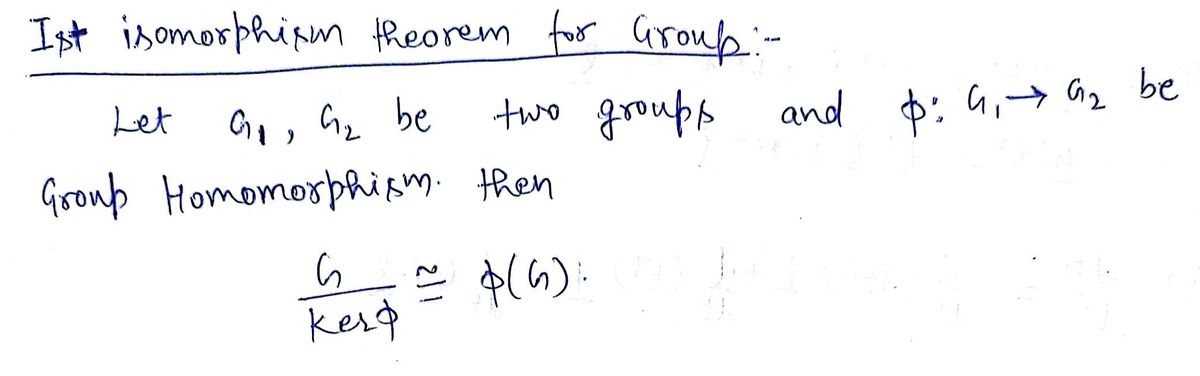 Ist isomorphism theorem for Group:-
Let G₁, G₂ be two groups and ϕ: G₁→ G₂ be
Group Homomorphism. then
G/kerϕ ≅ ϕ(G).